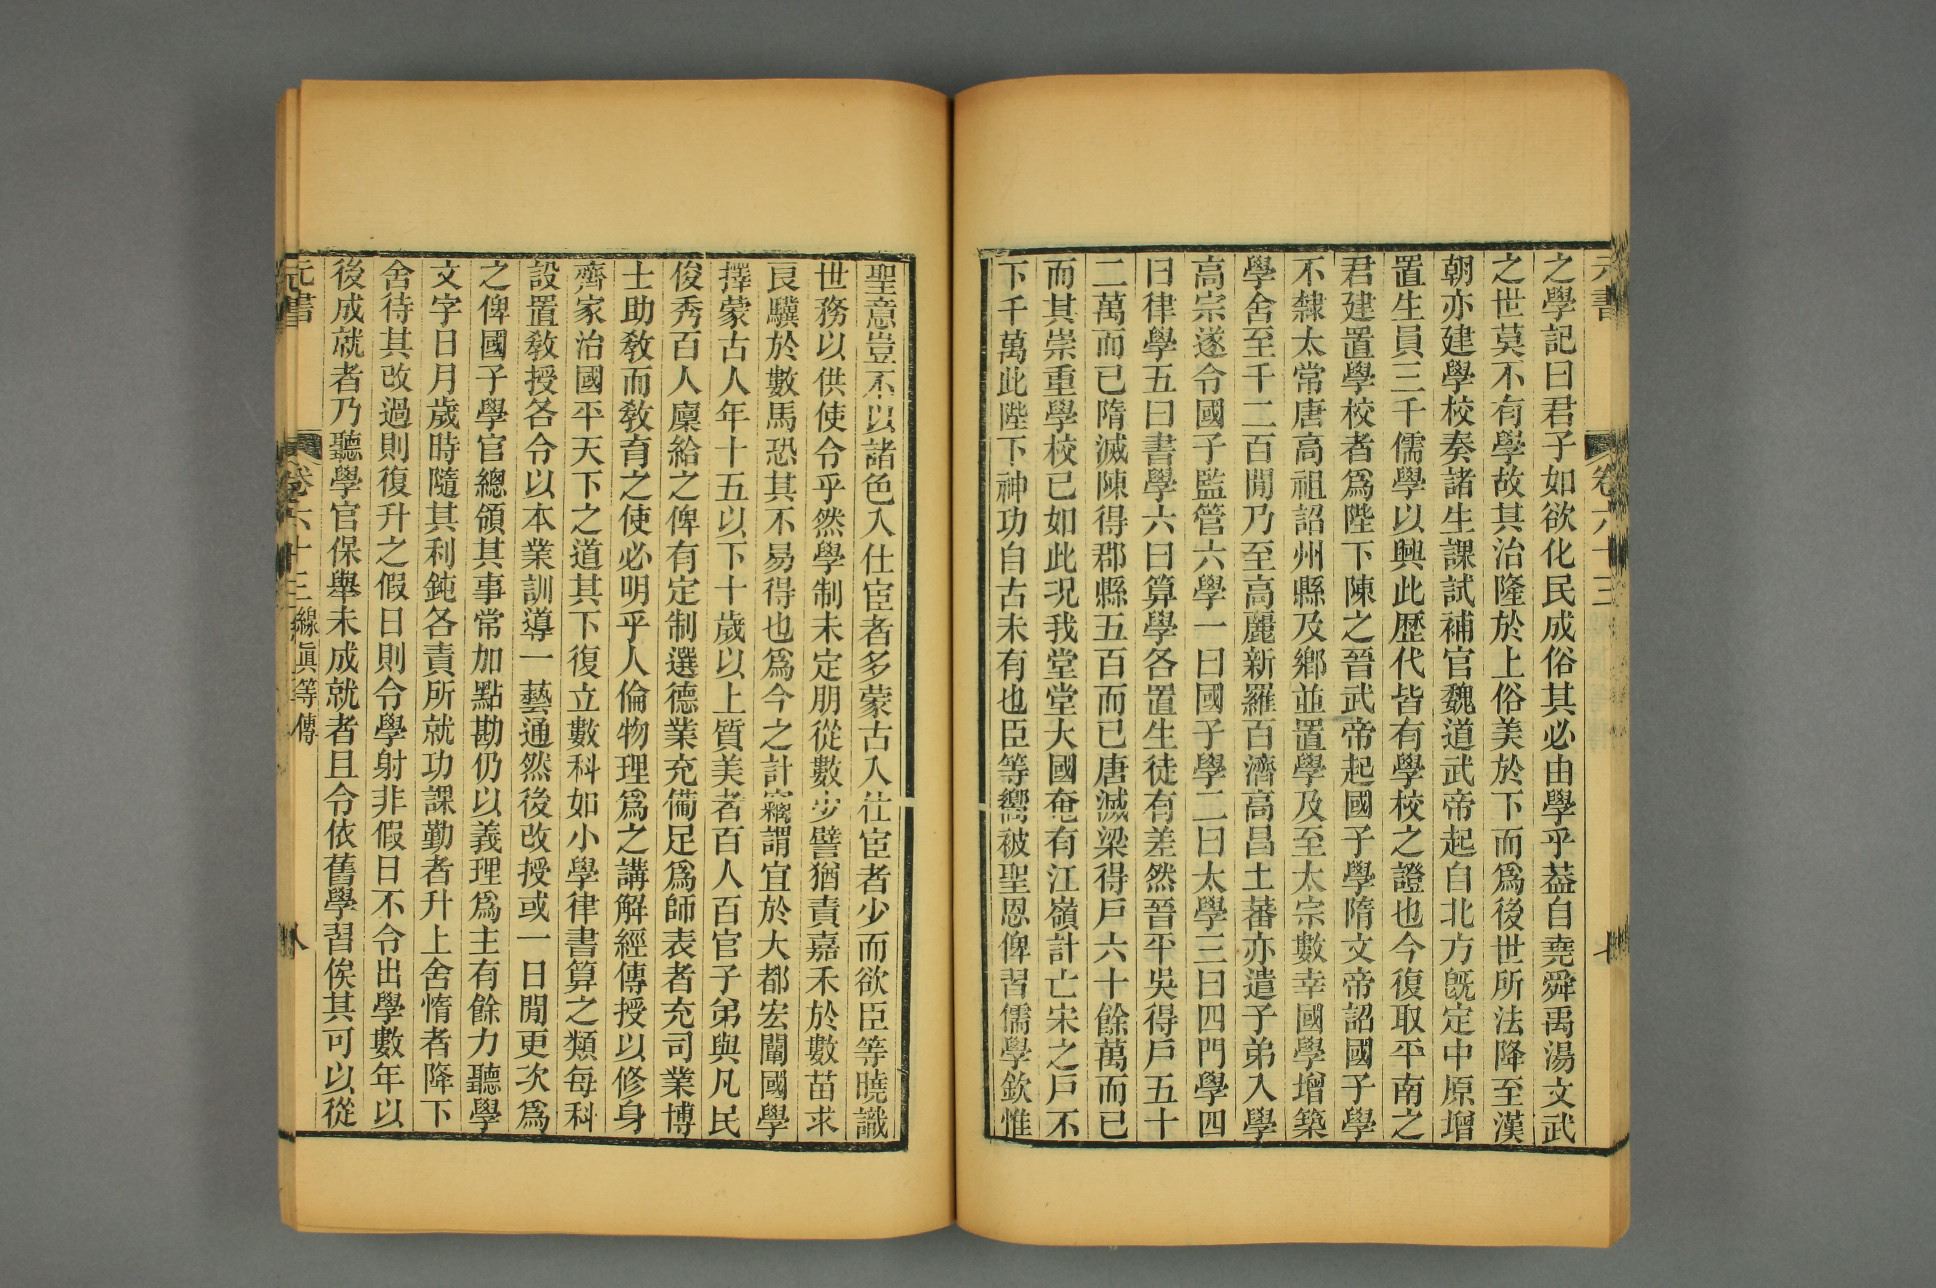 元書 卷六十三 七
之學記曰君子如欲化民成俗其必由學乎葢自堯舜禹湯文武
之世莫不有學故其治隆於上俗美於下而爲後世所法降至漢
朝亦建學校奏諸生課試補官魏道武帝起自北方旣定中原增
置生員三千儒學以興此歷代皆有學校之證也今復取平南之
君建置學校者爲陛下陳之晉武帝起國子學隋文帝詔國子學
不隸太常唐高祖詔州縣及鄉並置學及至太宗數幸國學增築
學舍至千二百閒乃至高麗新羅百濟高昌土蕃亦遣子弟入學
高宗遂令國子監管六學一曰國子學二曰太學三曰四門學四
曰律學五曰書學六曰算學各置生徒有差然晉平吳得戶五十
二萬而已隋滅陳得郡縣五百而已唐滅梁得戶六十餘萬而已
而其崇重學校已如此况我堂堂大國奄有江嶺計亡宋之戶不
下千萬此陛下神功自古未有也臣等嚮被聖恩俾習儒學欽惟
聖意豈不以諸色人仕宦者多蒙古人仕宦者少而欲臣等曉識
世務以供使令乎然學制未定朋從數少譬猶責嘉禾於數苗求
良驥於數馬恐其不易得也爲今之計竊謂宜於大都宏闡國學
擇蒙古人年十五以下十歲以上質美者百人百官子弟與凡民
俊秀百人廩給之俾有定制選德業充備足爲師表者充司業博
士助敎而敎育之使必明乎人倫物理爲之講解經傳授以修身
齊家治國平天下之道其下復立數科如小學律書算之類每科
設置敎授各令以本業訓導一藝通然後改授或一日閒更次爲
之俾國子學官總領其事常加點勘仍以義理爲主有餘力聽學
文字日月歲時隨其利鈍各責所就功課勤者升上舍惰者降下
舍待其改過則復升之假日則令學射非假日不令出學數年以
後成就者乃聽學官保舉未成就者且令依舊學習俟其可以從
元書 卷六十三 線眞等傳 八